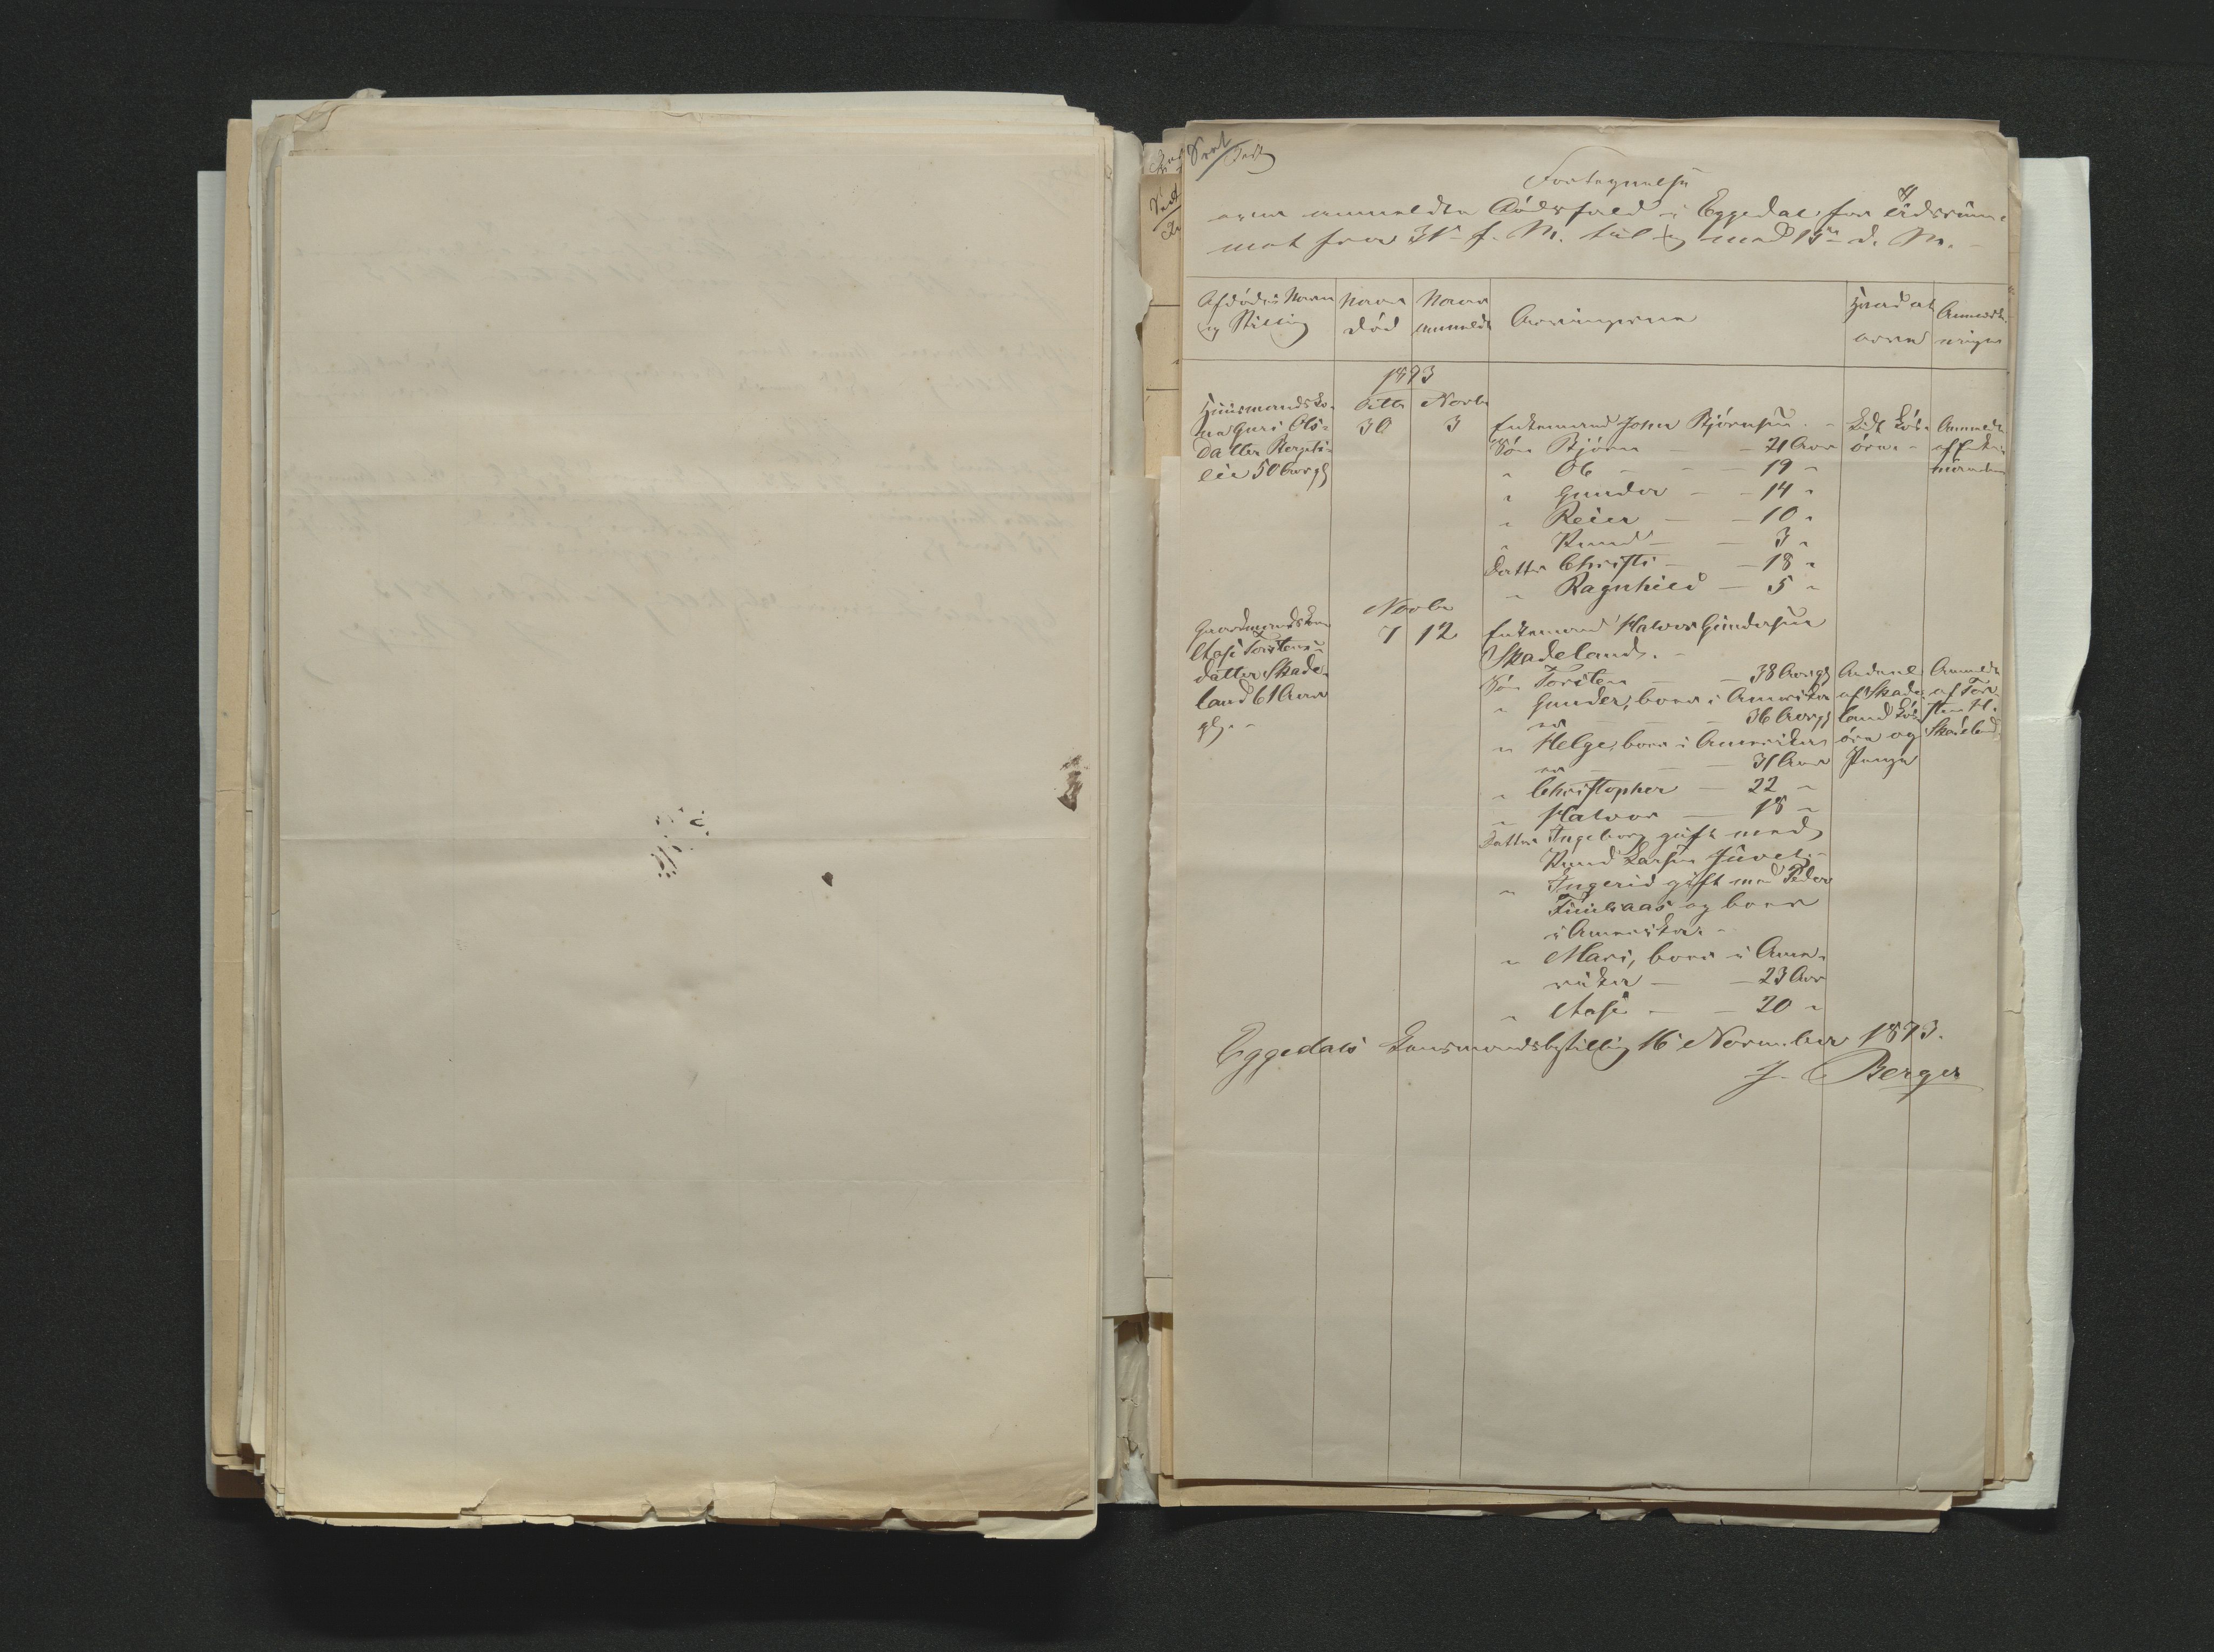 Fortegnelse
over anmeldte Dödsfald i Eggedal for Tidsrüm-
met fra 31te f. M. til og med 15de d. M.
Afdödes Navn og Stilling
Naar död
Naar anmeldt
Arvingerne
Hvad at arve
Anmærkninger
1873
Octbr Novbr
Hüusmandsko-
ne Guri Ols-
datter Bergets-
eie 50 Aar gl
30 3
Enkemand John Björnsen
Sön Björn — 21 Aar
" Ole — 19 "
" Gunder — 14 "
" Reier — 10 "
" Knud — 3 "
Datter Christi — 18 "
" Ragnhild — 5 "
Lidt Lös-
öre
Anmeldt
af Enke-
manden
Novbr
Gaardmandskone
Aase Torstens-
datter Skade-
land 61 Aar
gl.
7 12
Enkemand Halvor Gundersen
Skadeland.
Sön Torsten — 38 Aar gl
" Gunder, boer i Amerika
er — 36 Aar gl
" Helge, boer i Amerika
er — 31 Aar
" Christopher — 22 "
" Halvor — 18 "
Datter Ingeborg gift med
Knud Larsen Juvel
" Ingerid gift med Peder
og boer
i Amerika
" Mari, boer i Ame-
rika — 23 Aar
" Aase — 20 "
Andeel
af Skade-
land Lös-
öre og
Penge
Anmeldt
af Tor-
sten H.
Skadeland
Eggedals Lensmandsbestilling 16 November 1873.
J. Berger